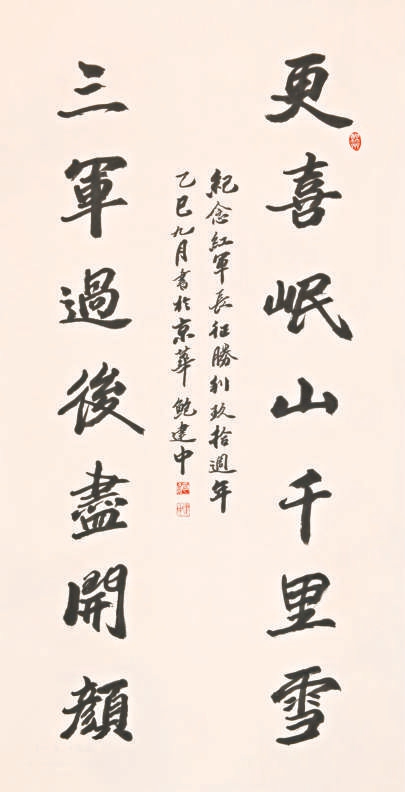 更喜岷山千里雪
紀念紅軍長征勝利玖拾週年
乙巳九月書於京華 鮑建中
三軍過後盡開顏